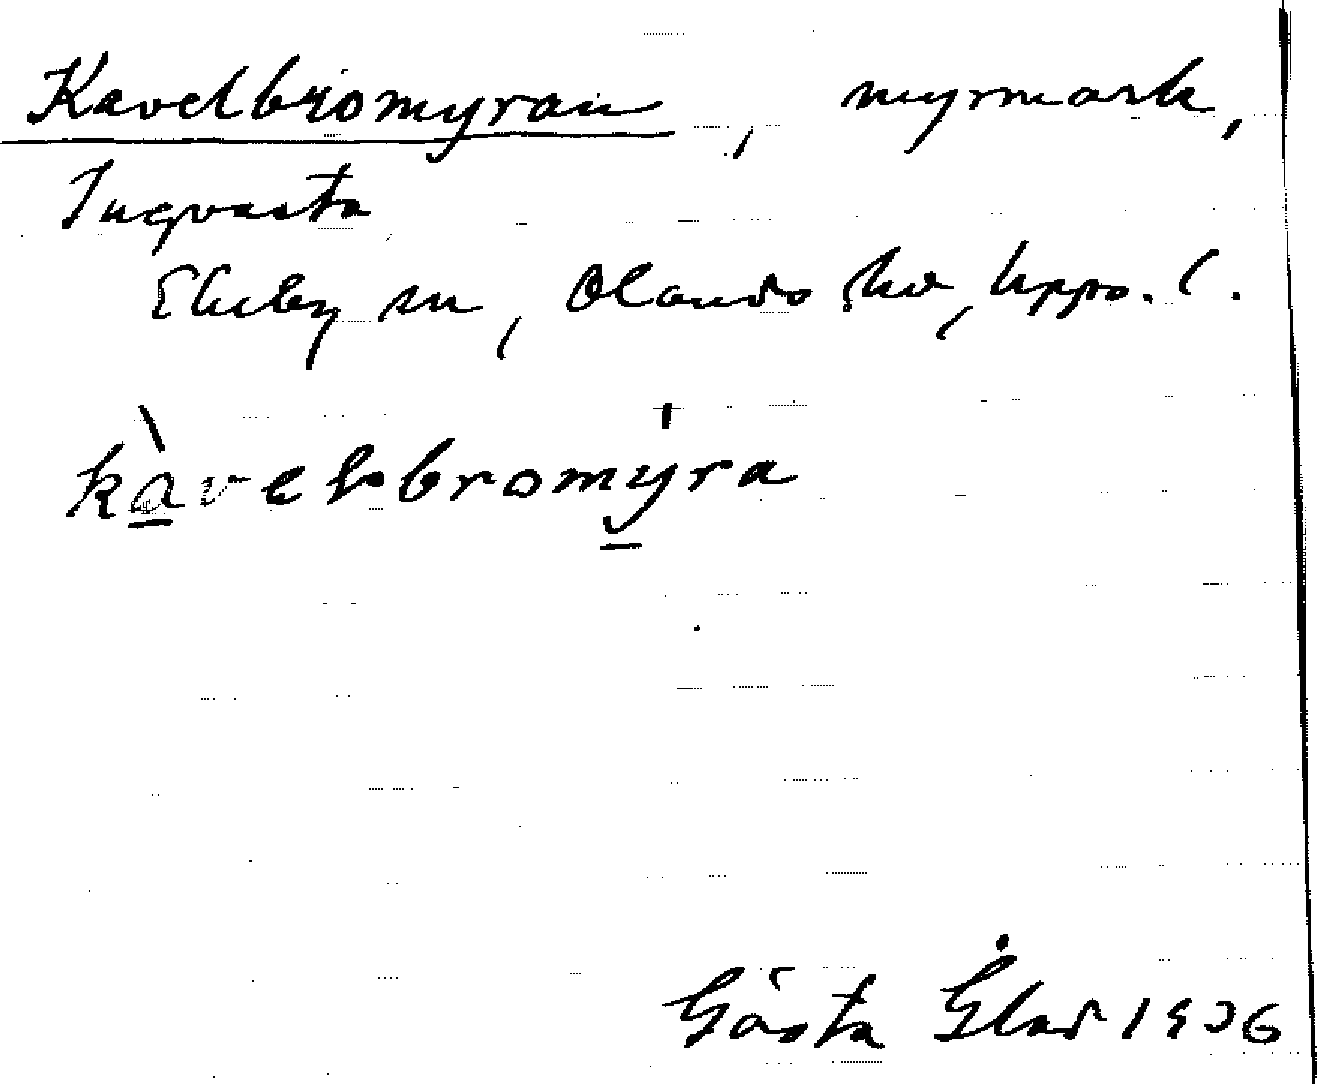 Kavelbromyran, myrmark,
Ingvasta
Ekeby sn, Olands hd, Upps. l.
kàvelbromýra
Gösta Glad 1936